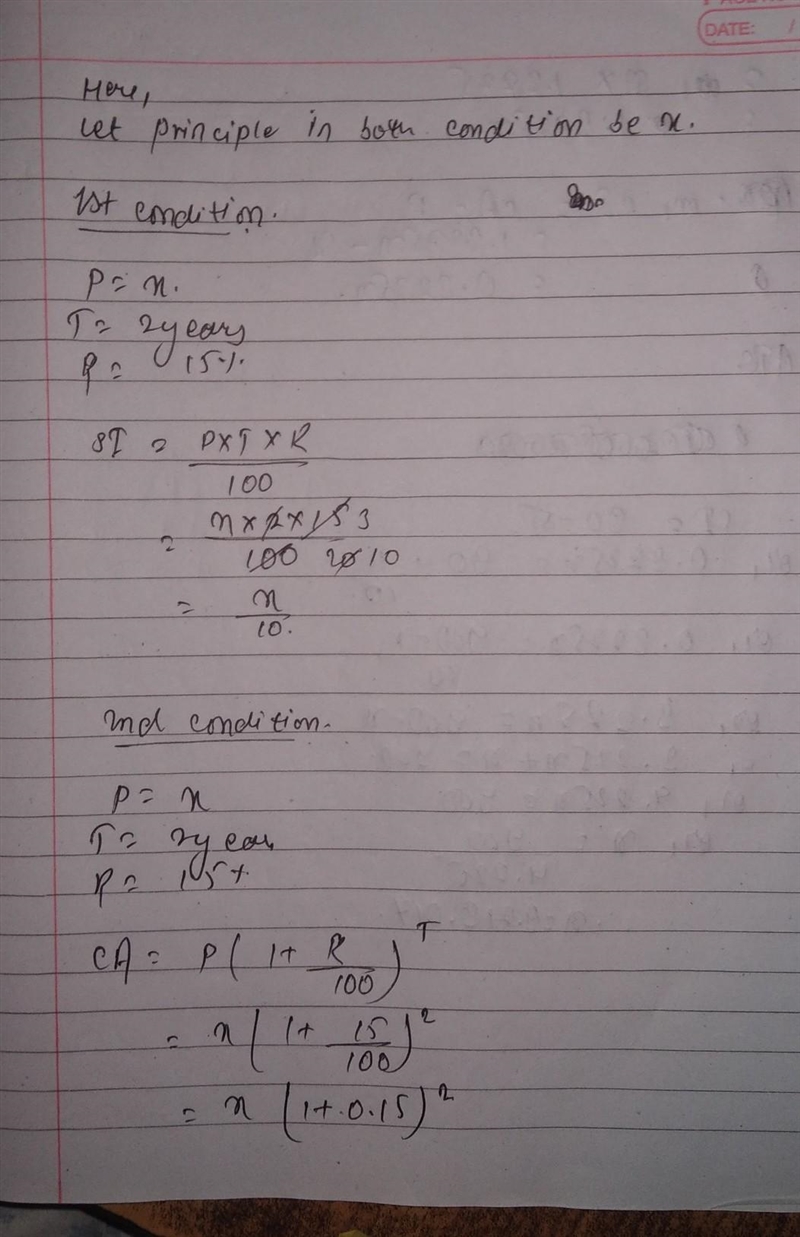 DATE: /
Here,
Let principle in both condition be x.
1st condition.
P = x.
T = 2years
R = 15%
SI = P×T×R
100
= x×2×15 3
100 20 10
= x
10.
2nd condition.
P = x
T = 2year
R = 15%
CA = P(1+ R/100)^T
= x(1+ 15/100)^2
= x (1+0.15)^2